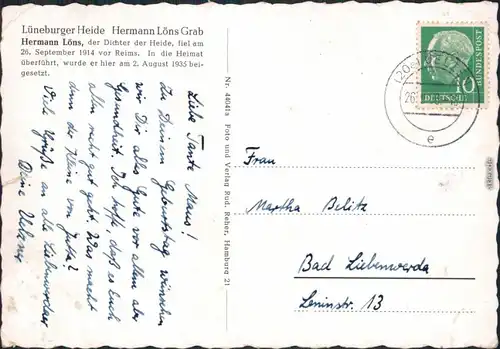 Lüneburger Heide Hermann Löns Grab
Hermann Löns, der Dichter der Heide, fiel am
26. September 1914 vor Reims. In die Heimat
überführt, wurde er hier am 2. August 1935 bei-
gesetzt.
Liebe Tante Maus!
Zu Deinem Geburtstag wünschen
wir Dir alles Gute vor allem aber
Gesundheit. Ich hoffe, daß es Euch
allen recht gut geht. Was macht
denn die Kleine von Jutta?
Viele Grüße an alle Liebenwerdaer
Deine
Nr. 44041a Foto und Verlag Rud. Reher, Hamburg 21
DEUTSCHE
BUNDESPOST
10
(20a)
e
Frau
Martha Belitz
Bad Liebenwerda
Leninstr. 13